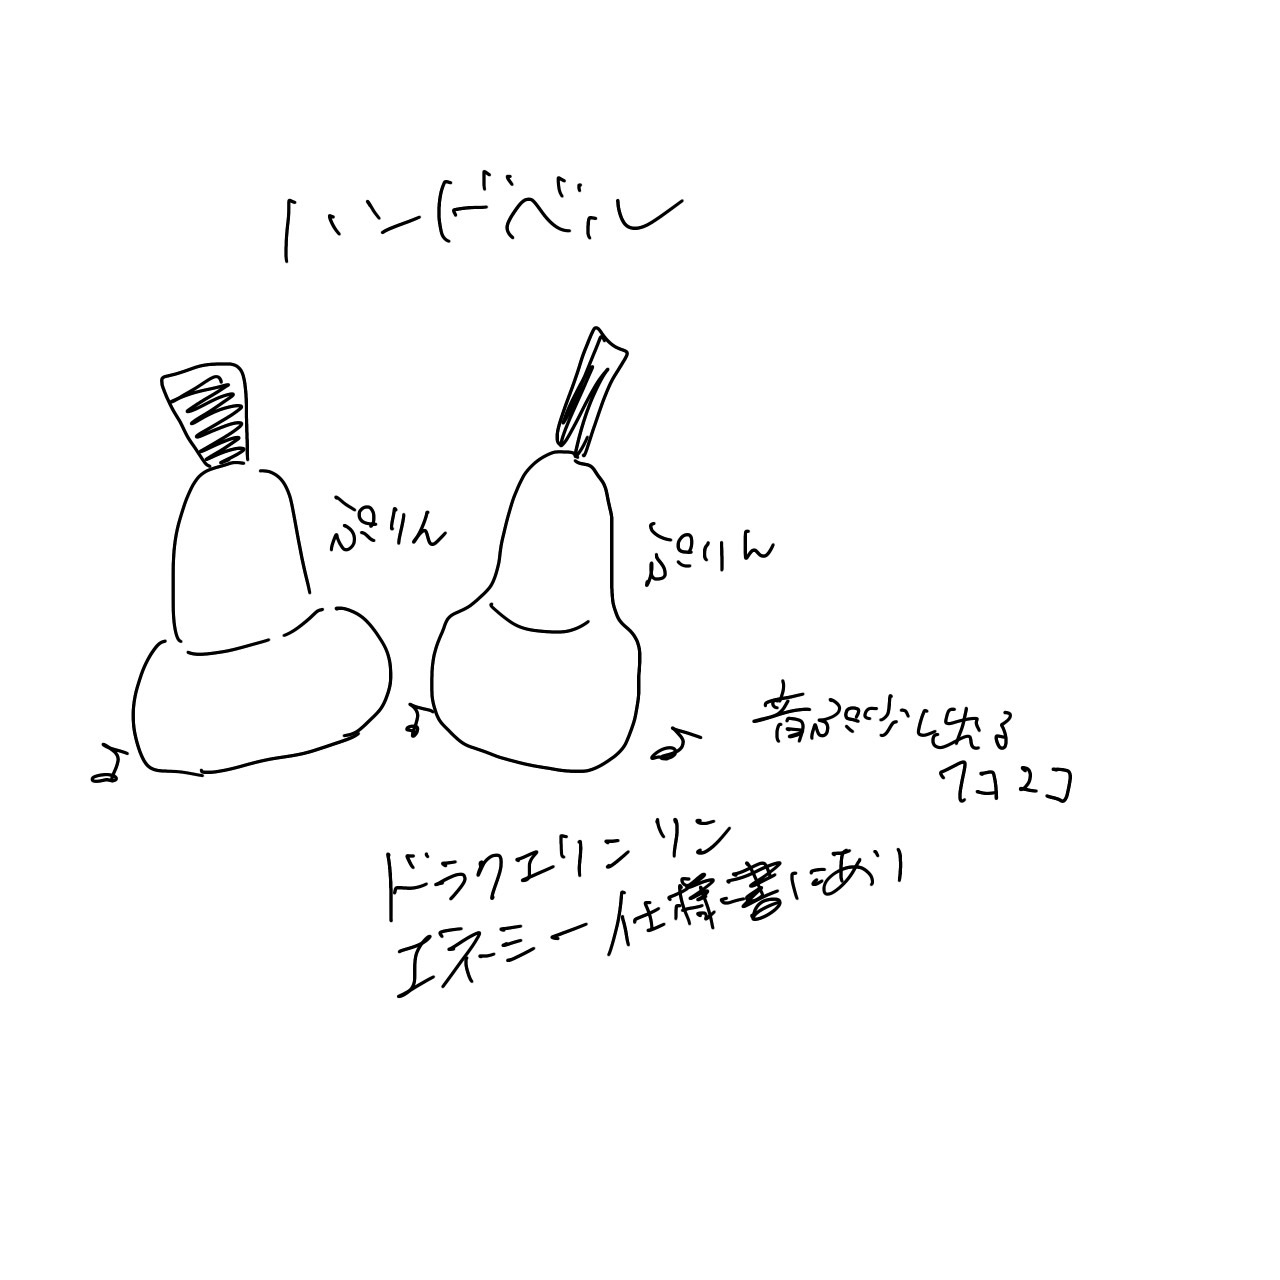 ハンドベル
ぷりん
ぷりん
音ぷ少し出る
1コ2コ
ドラクエリンリン
エネミー仕様書にあり